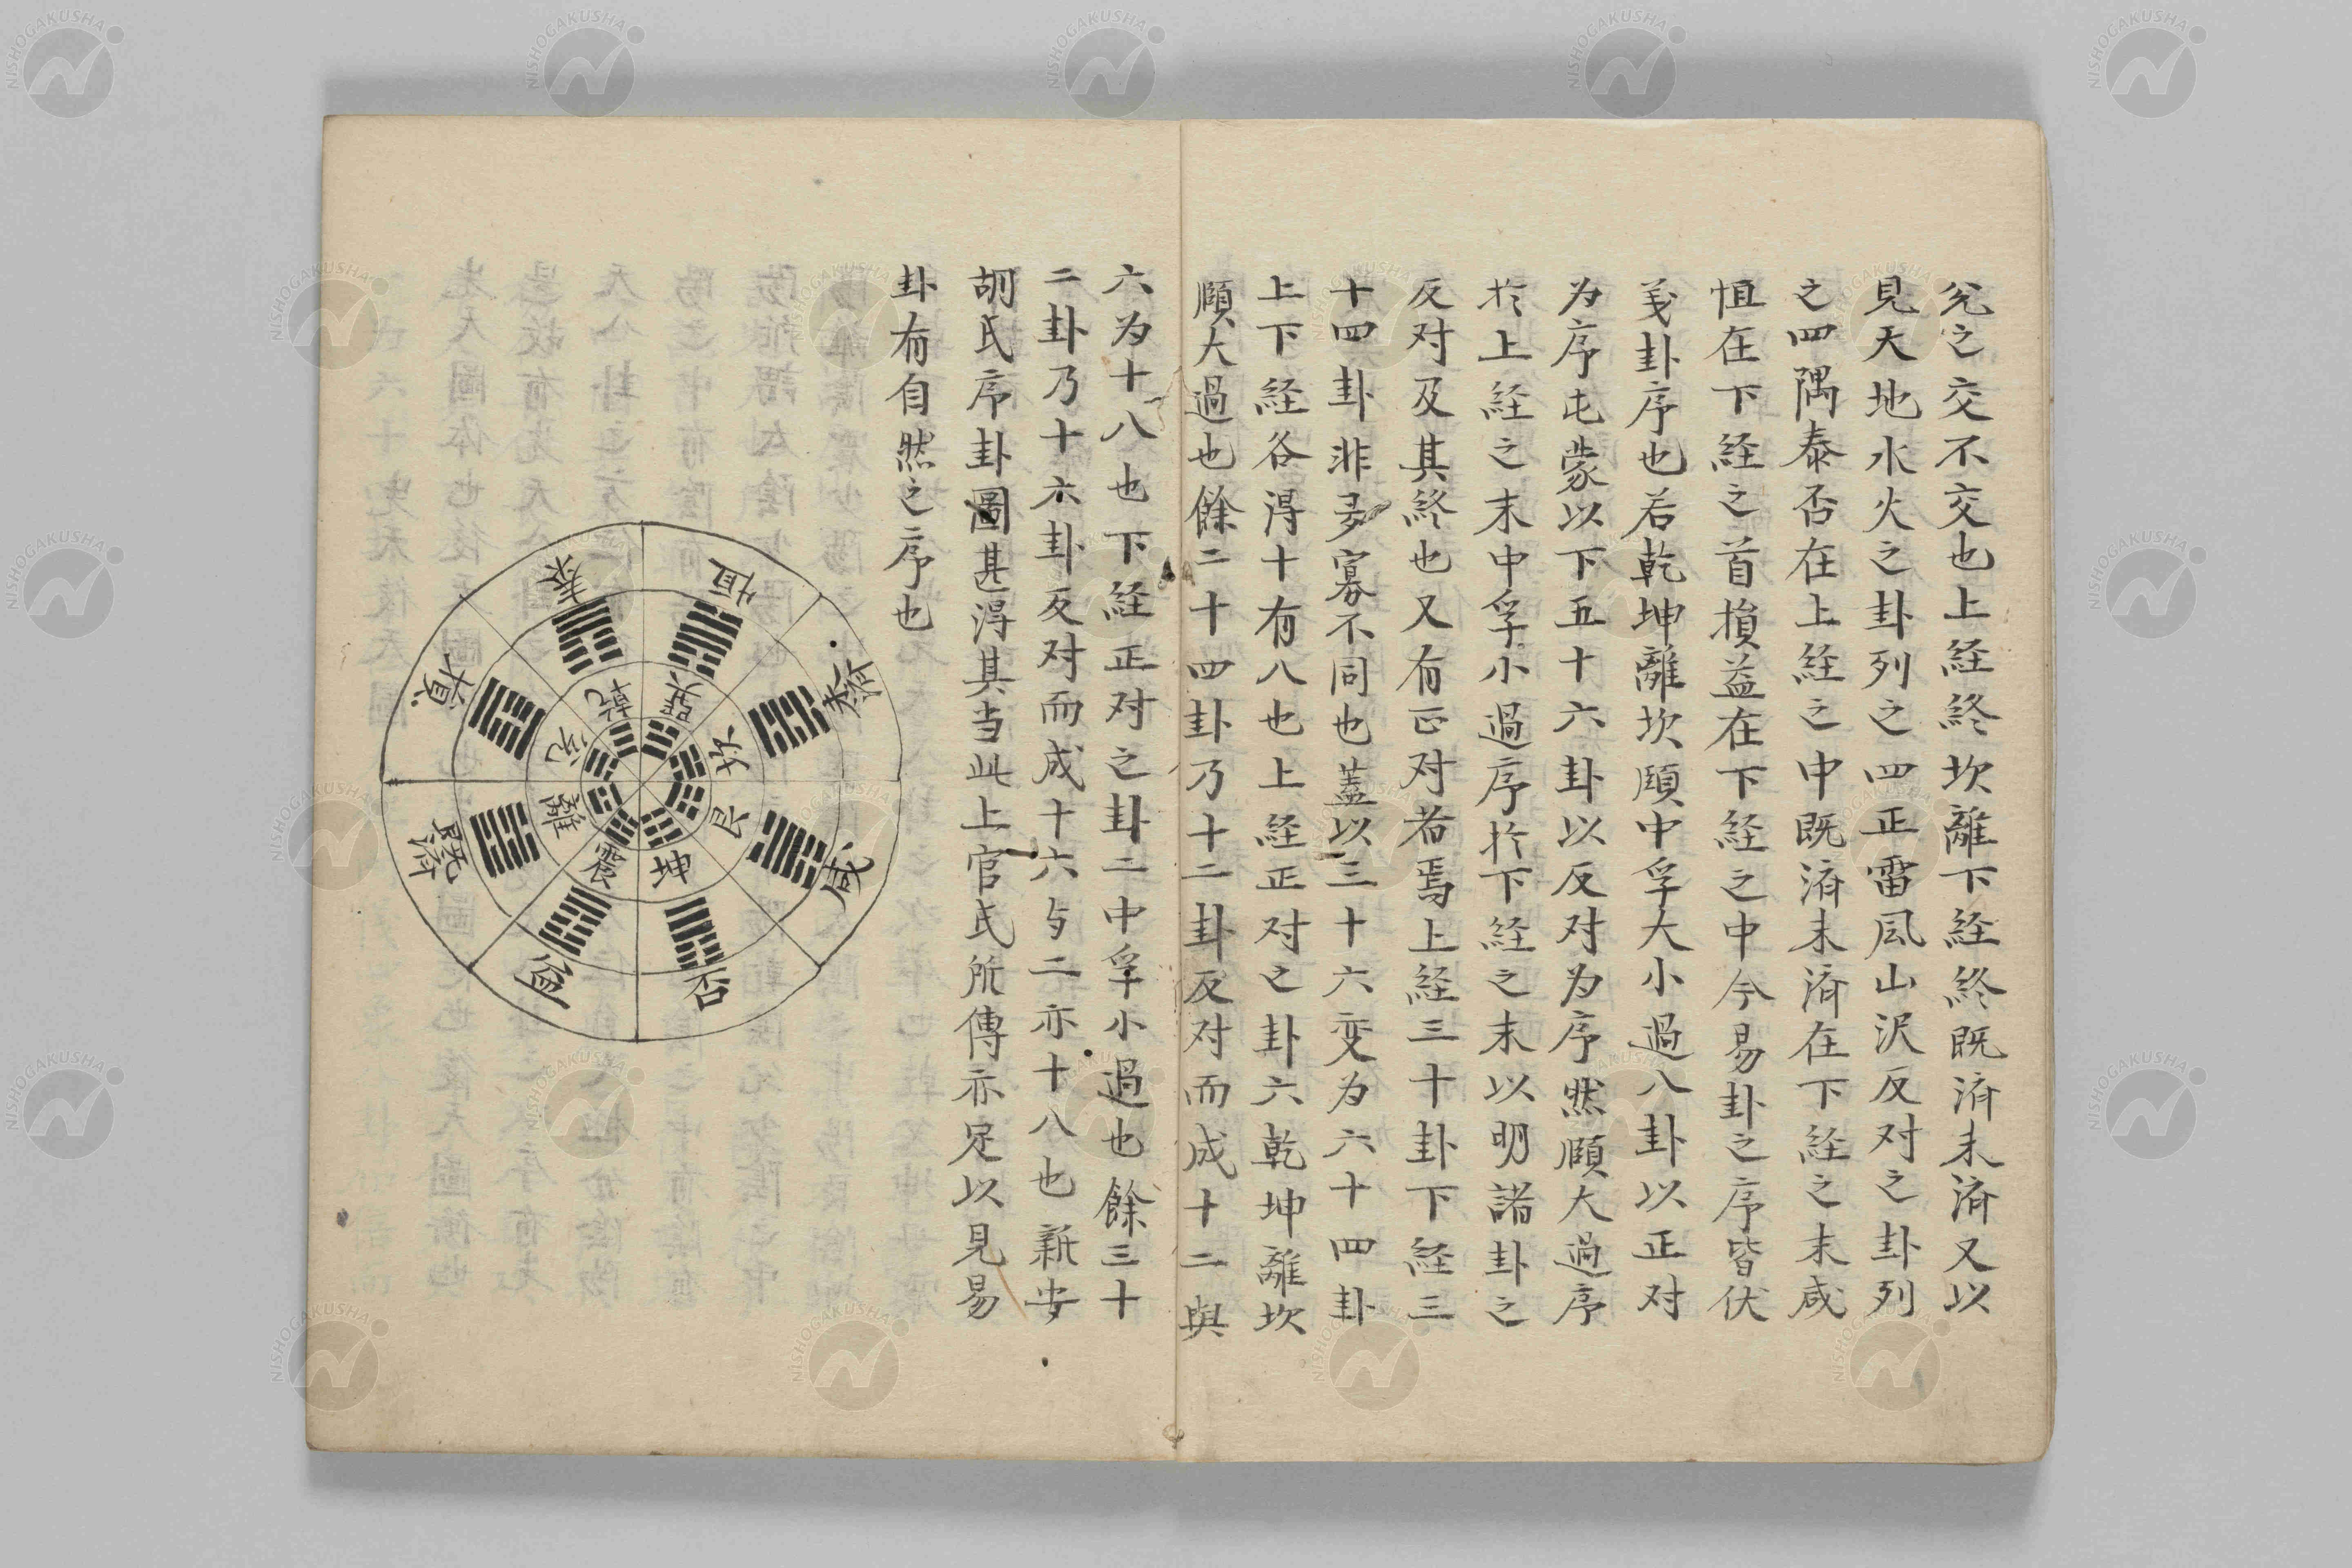 兊之交不交也上経終坎離下経終既済未済又以
見天地水火之卦列之四正雷風山沢反対之卦列
之四隅泰否在上経之中既済未済在下経之末咸
恒在下経之首損益在下経之中今易卦之序皆伏
羲卦序也若乾坤離坎頤中孚大小過八卦以正対
为序屯蒙以下五十六卦以反对为序然頤大過序
於上経之末中孚小過序於下経之末以明諸卦之
反对及其終也又有正对者焉上経三十卦下経三
十四卦非多寡不同也蓋以三十六变为六十四卦
上下経各得十有八也上経正对之卦六乾坤離坎
頤大過也餘二十四卦乃十二卦反对而成十二與
六为十八也下経正对之卦二中孚小過也餘三十
二卦乃十六卦反对而成十六与二亦十八也新安
胡氏序卦圖甚得其当此上官氏所傳亦足以見易
卦有自然之序也
恒
泰
損
既済
益
否
咸
未済
乾
兊
離
震
巽
坎
艮
坤
NISHOGAKUSHA